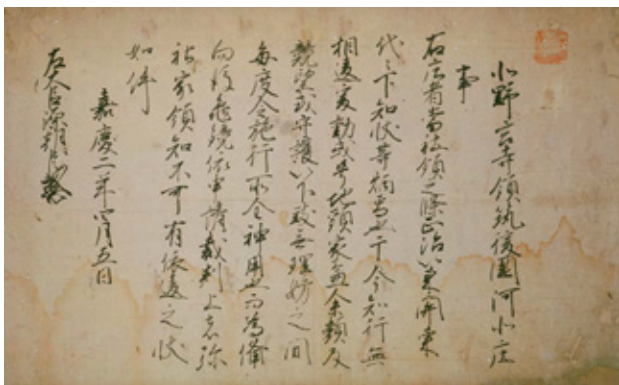 小野庄寺領筑後国河北庄
事
右庄者当社領之条正治以来関東
代々下知状等炳焉也于今知行無
相違変動或号地頭家並余類及
競望或守護以下致無理妨之間
毎度令施行所全神用也而為備
向後亀鏡依申請裁判上者弥
社家領知不可有依違之状
如件
嘉慶二年四月五日
左 源朝臣